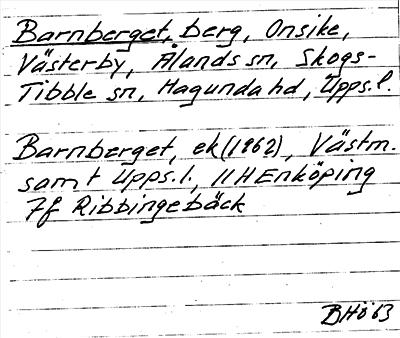 Barnberget, berg, Onsike,
Västerby, Ålands sn, Skogs-
Tibble sn, Hagunda hd, Upps. l.
Barnberget, ek (1962), Västm.
samt Upps. l., 11H Enköping
7f Ribbingebäck
BHö 63